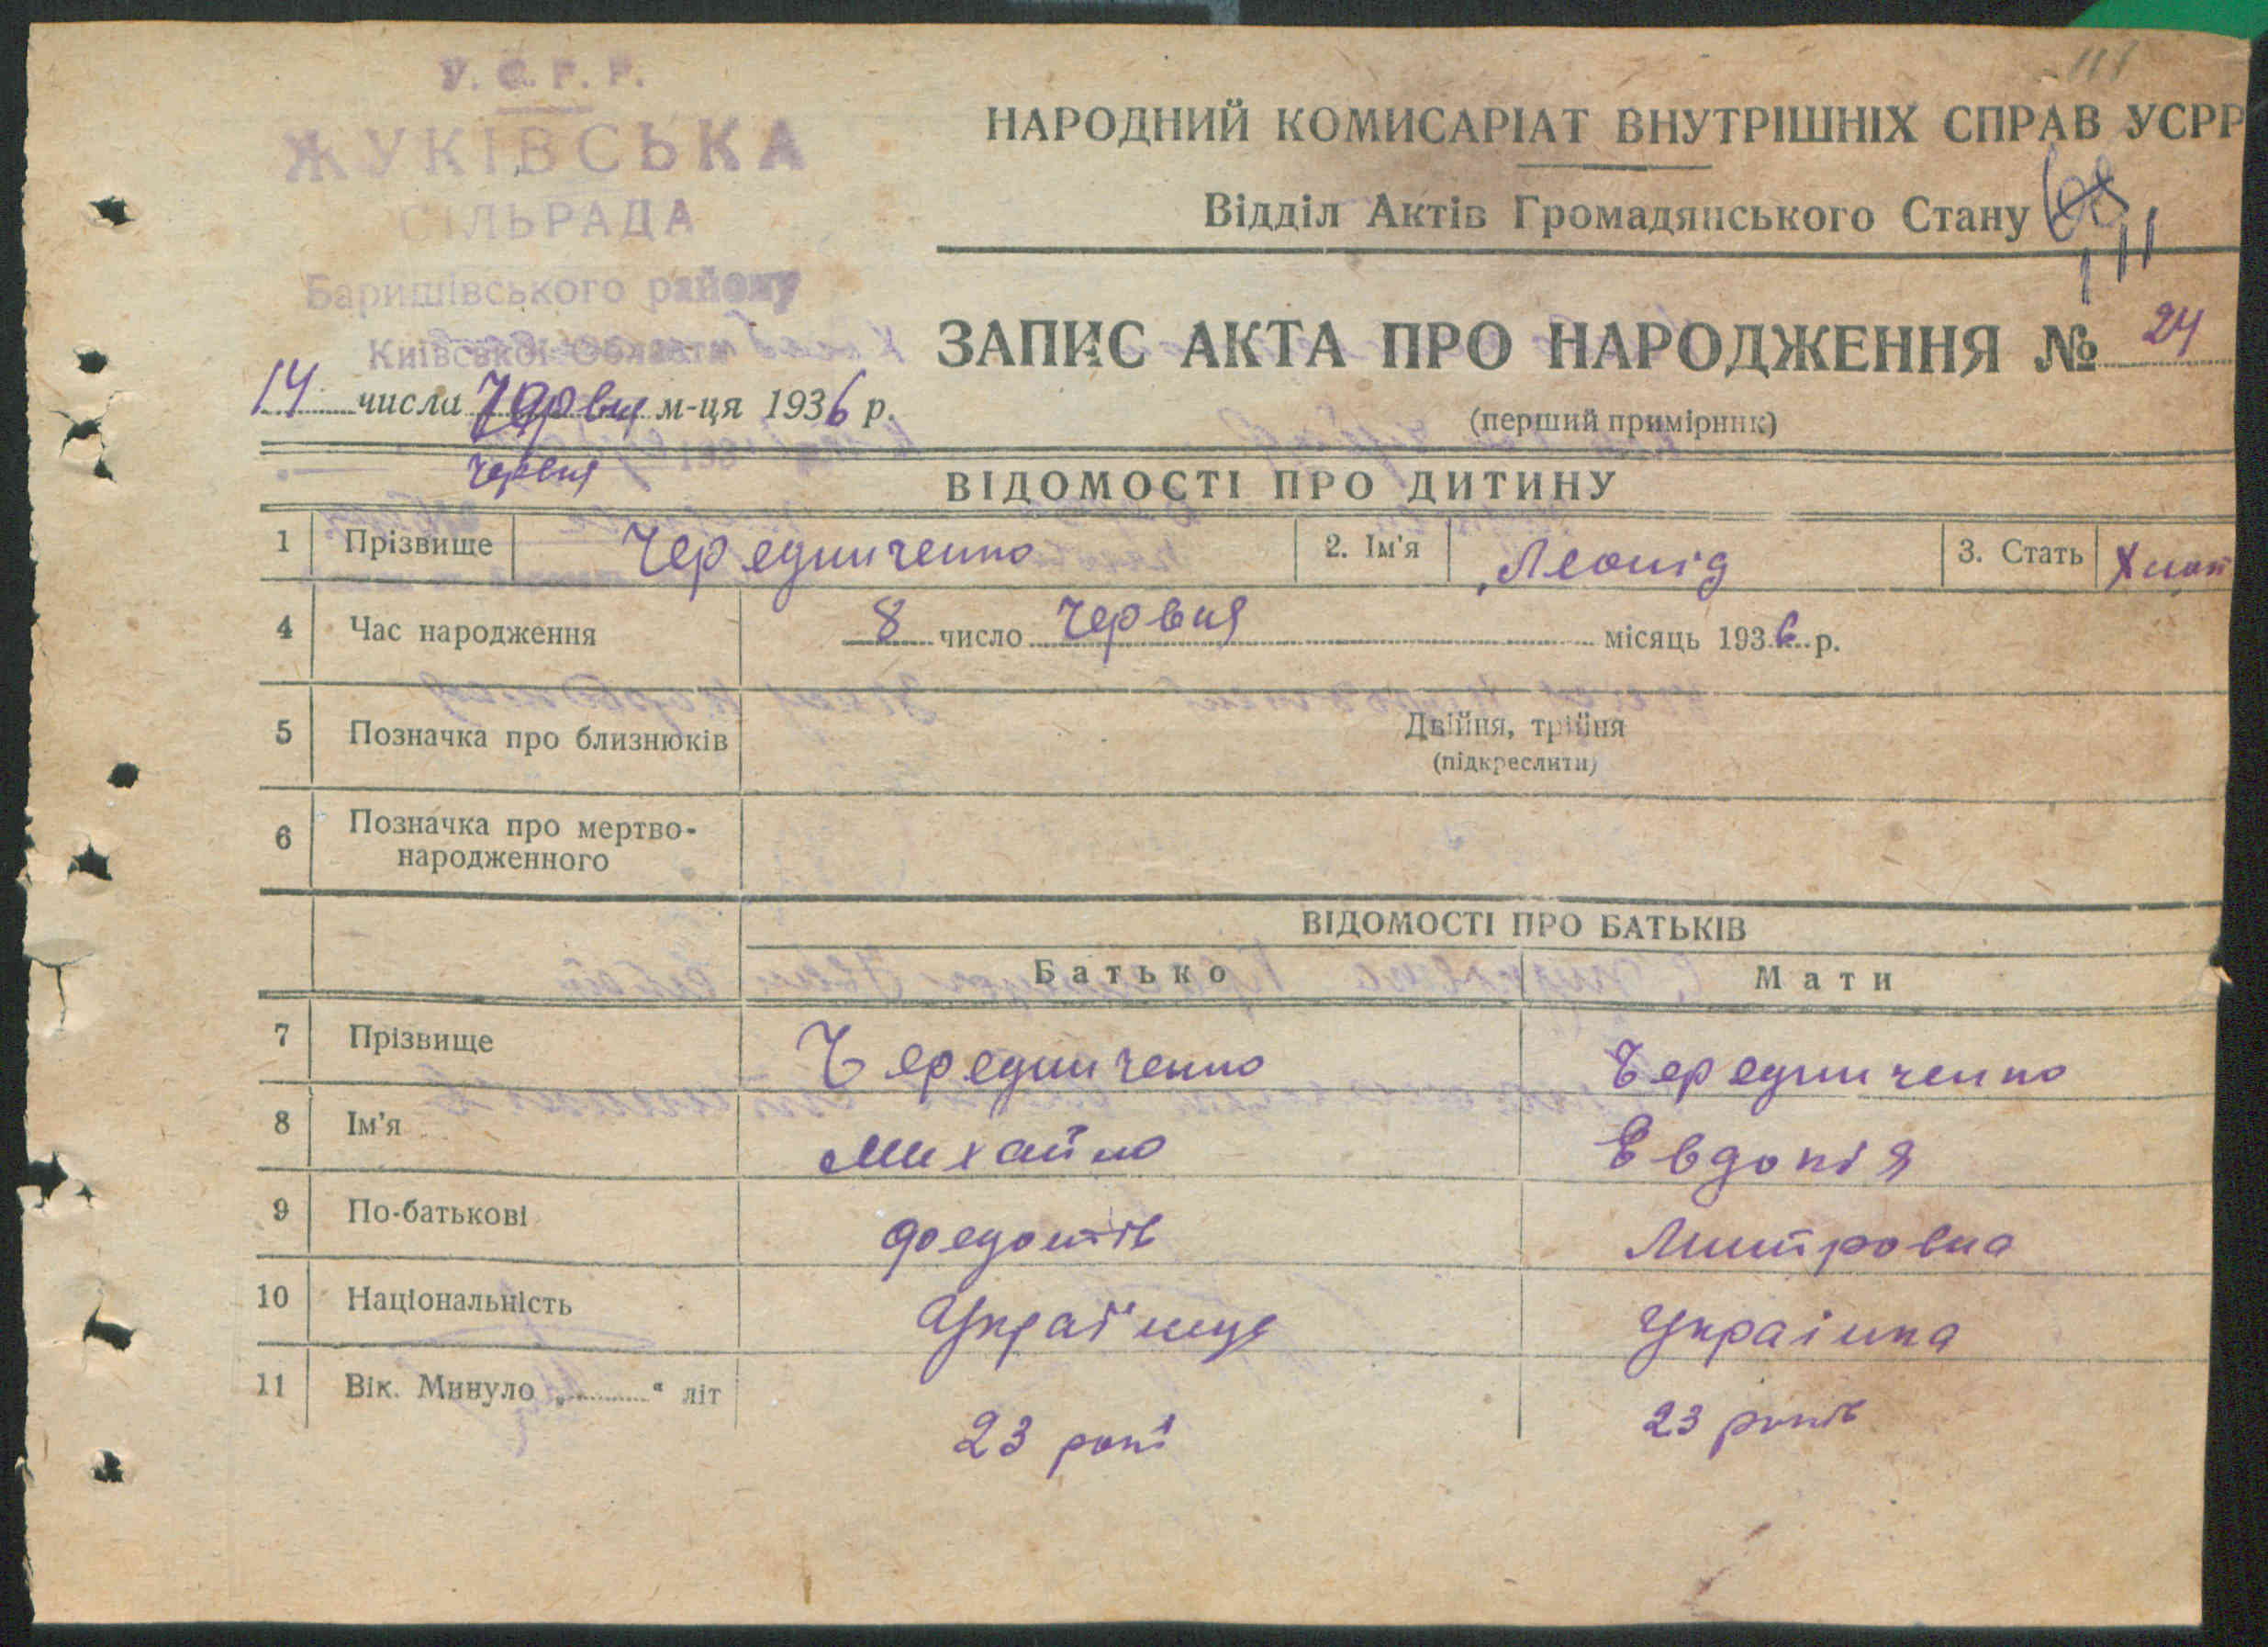 У. С. Р. Р.
ЖУКІВСЬКА
СІЛЬРАДА
Баришівського району
Київської Області
14 числа Червня м-ця 1936 р.
червня
111
НАРОДНИЙ КОМИСАРІАТ ВНУТРІШНІХ СПРАВ УСРР
Відділ Актів Громадянського Стану
111
ЗАПИС АКТА ПРО НАРОДЖЕННЯ № 24
(перший примірник)
ВІДОМОСТІ ПРО ДИТИНУ
1 Прізвище Чередниченко 2. Ім'я Леонід 3. Стать Хлоп
4 Час народження 8 число Червня місяць 1936 р.
5 Позначка про близнюків Двійня, трійня
(підкреслити)
6 Позначка про мертво-
народженного
ВІДОМОСТІ ПРО БАТЬКІВ
Батько Мати
7 Прізвище Чередниченко Чередниченко
8 Ім'я Михайло Евдокія
9 По-батькові Федотів Митровна
10 Національність Украінець Украінка
11 Вік. Минуло „ “ літ 23 рокі 23 років